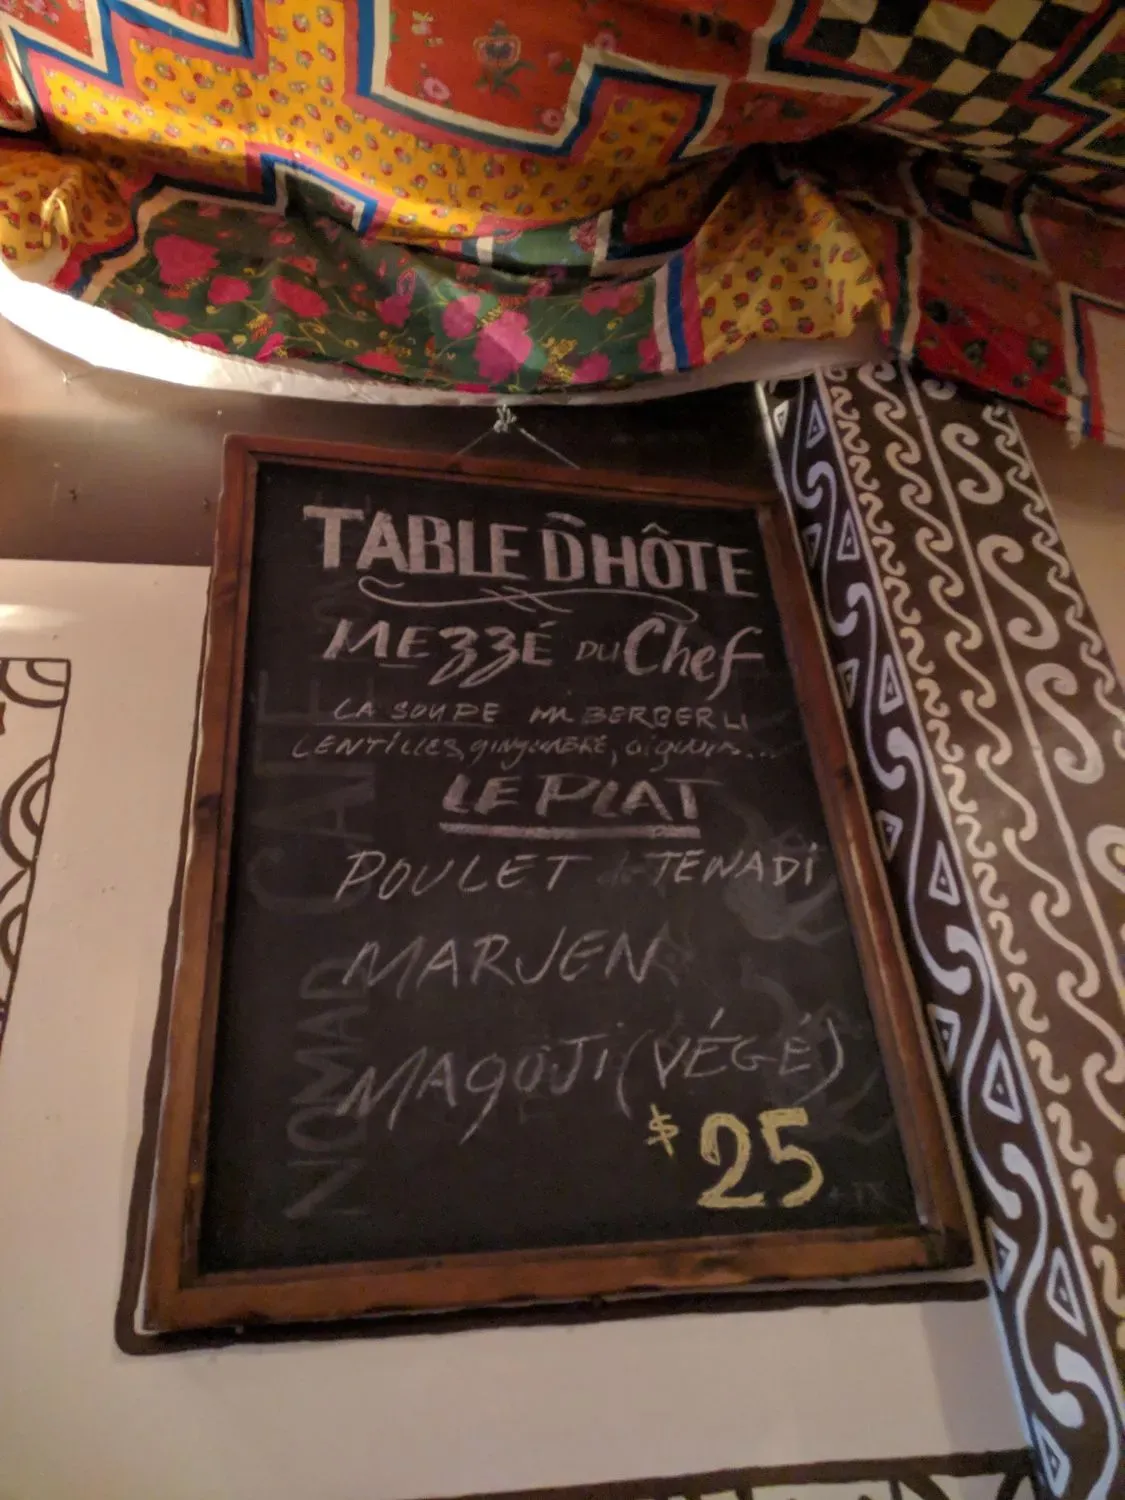 TABLE D'HÔTE
MEZZÉ DU Chef
LA SOUPE BERBERLI
LENTILLES, gingembre,
LE PLAT
POULET TENADI
MARJEN
MAGOJI (VÉGÉ)
$25
NOMAD CAFÉ